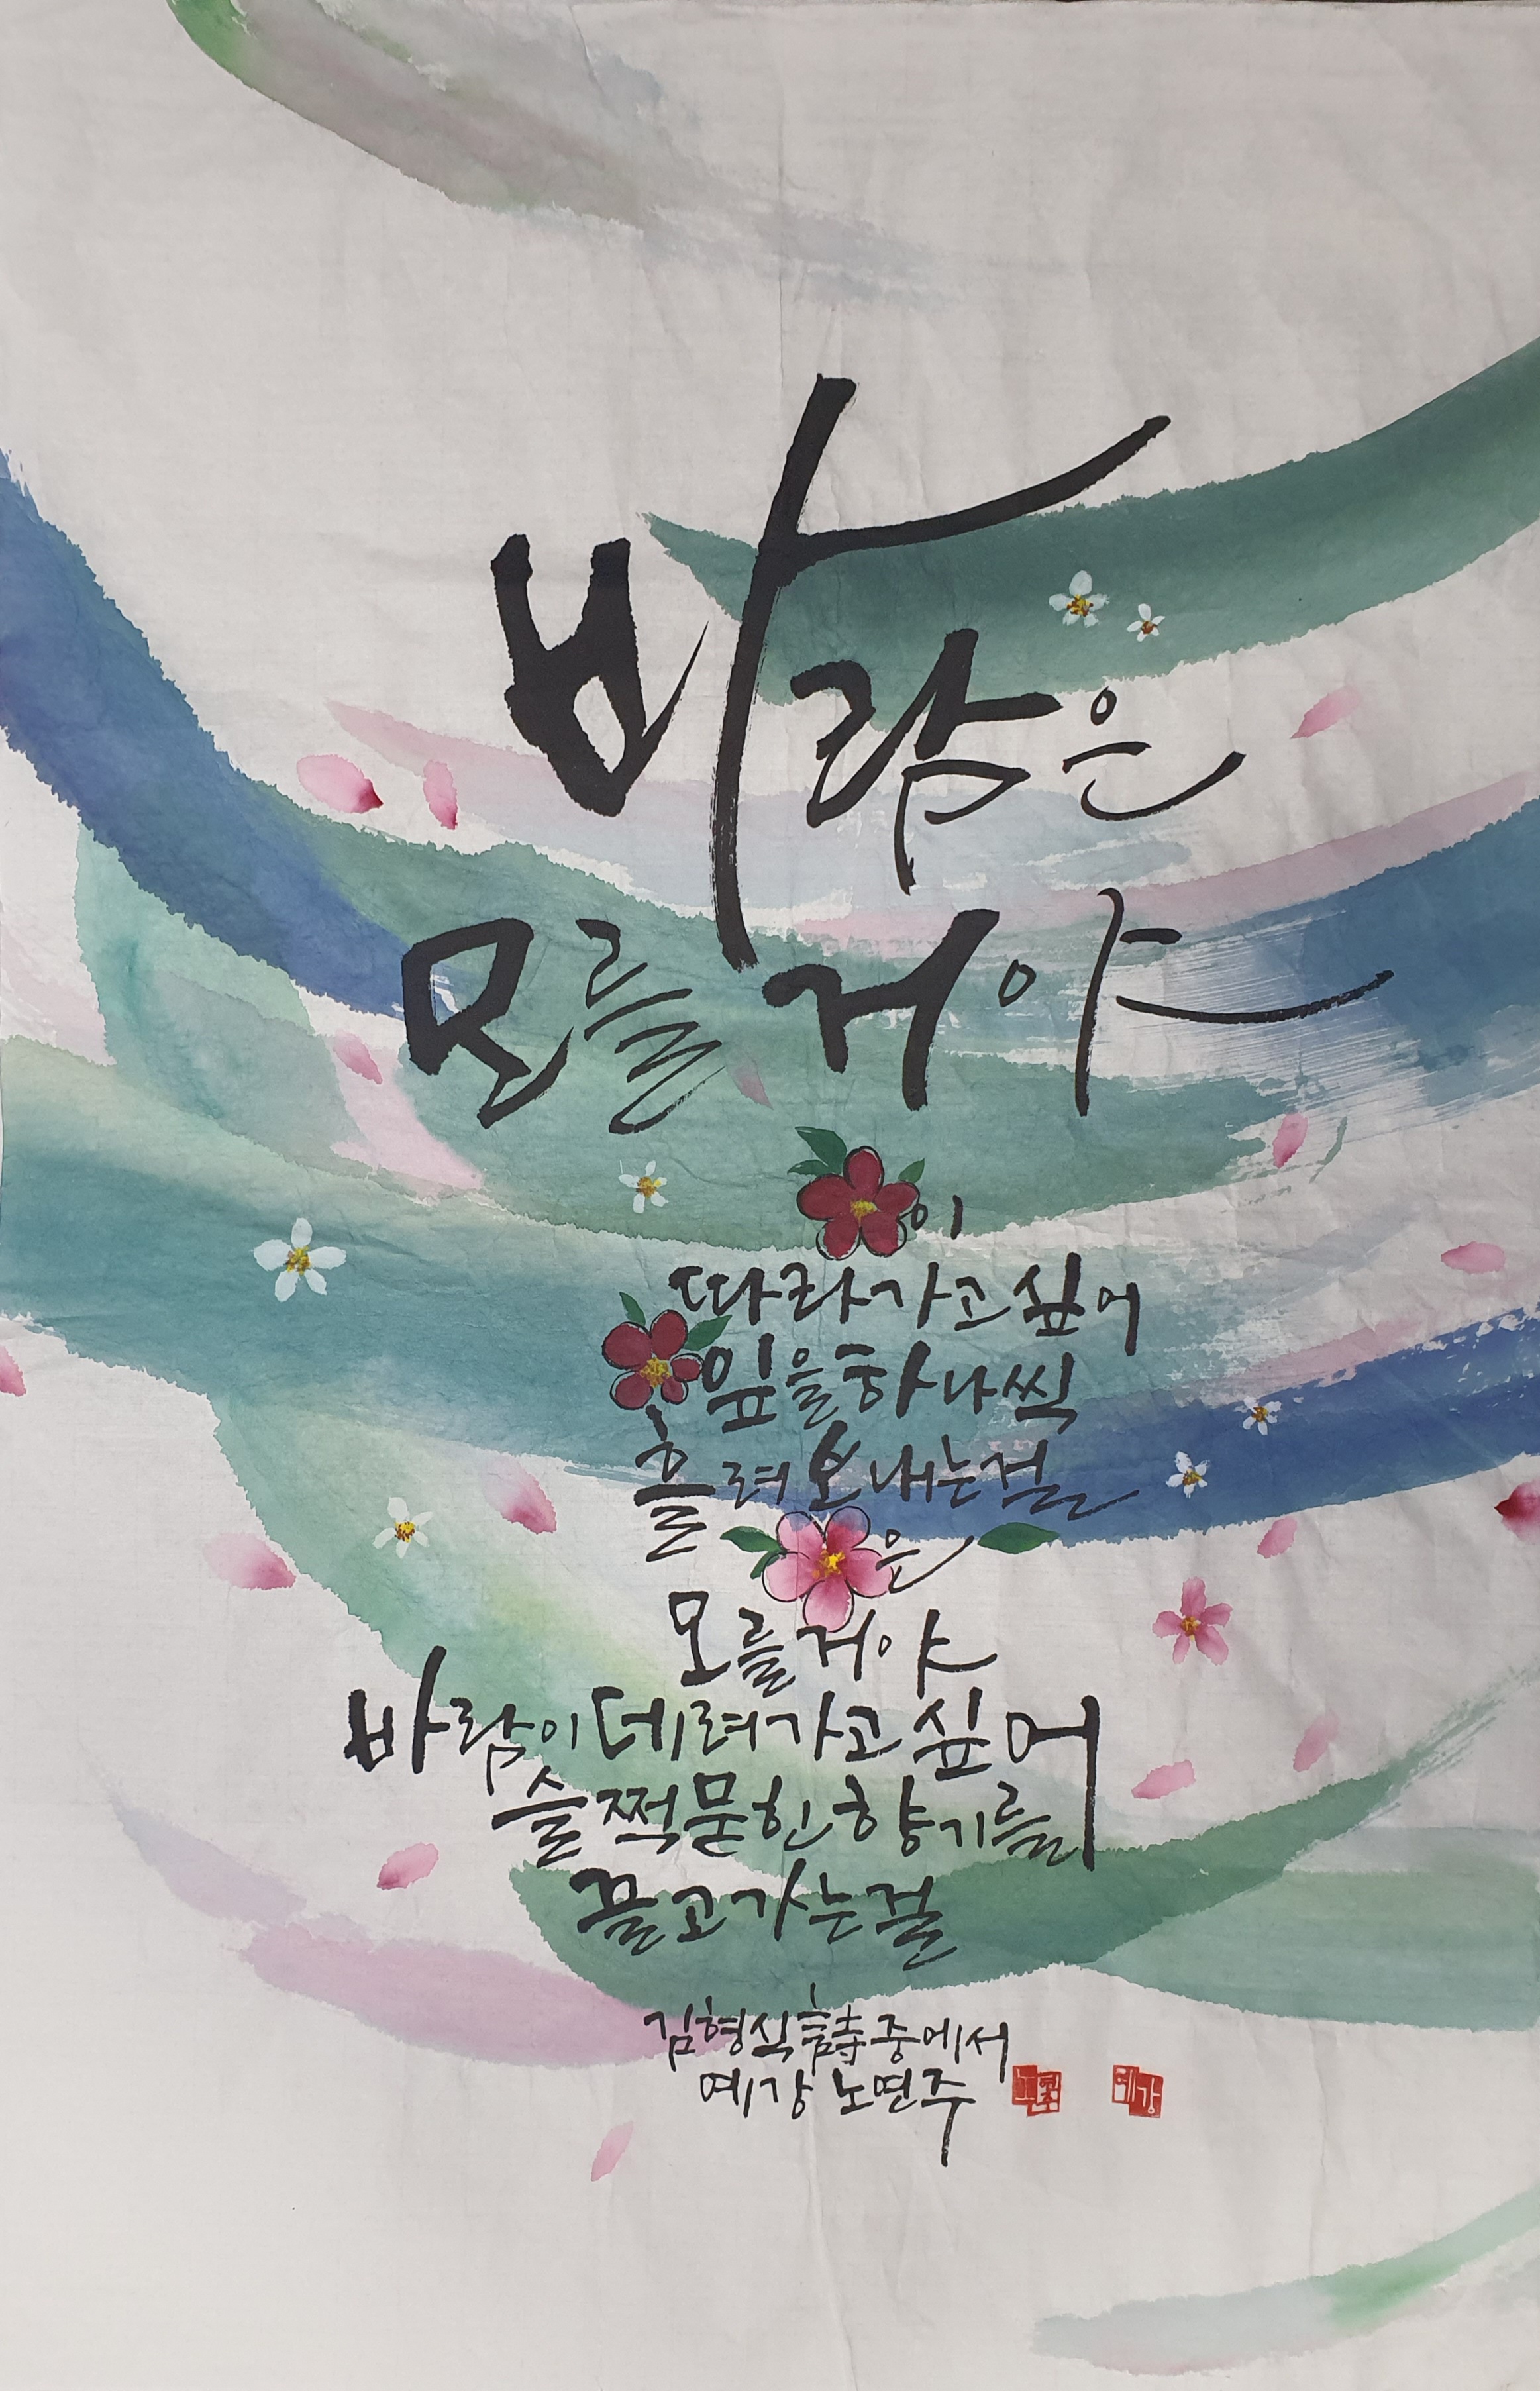 바람은
모를거야
이
따라가고싶어
잎을하나씩
흘려보내는걸
은
모를거야
바람이데려가고싶어
슬쩍묻힌향기를
끌고가는걸
김형식詩중에서
예강 노연주
예강